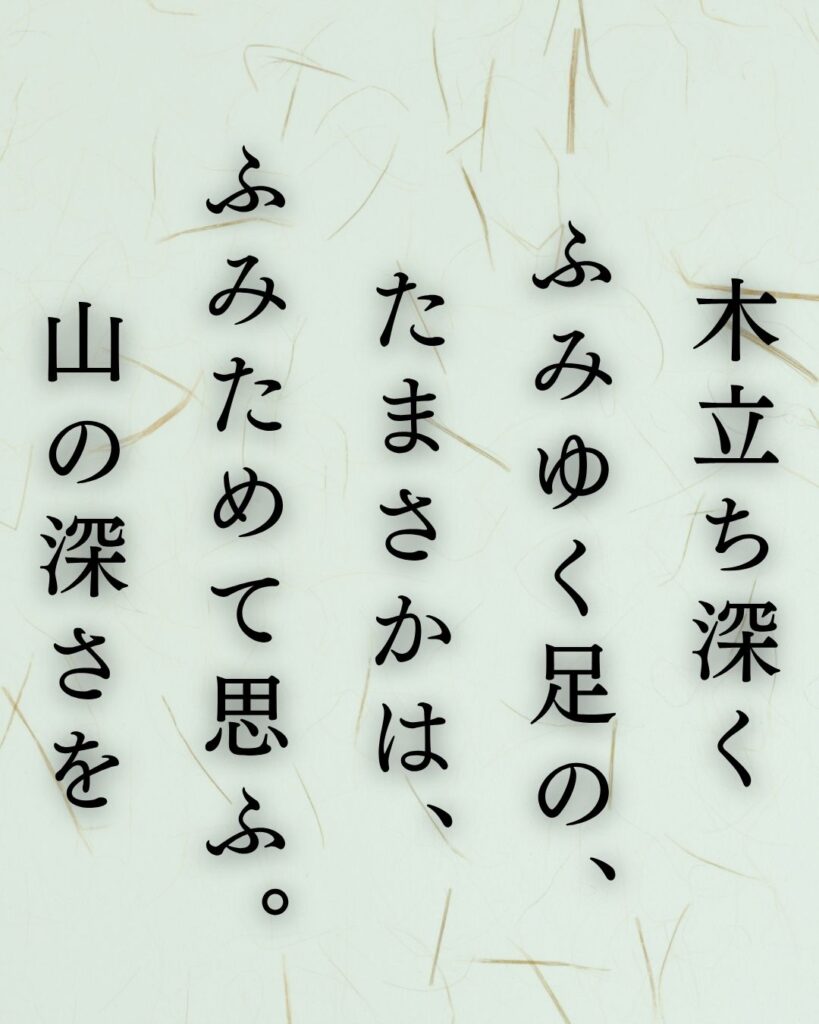 木立ち深く
ふみゆく足の、
たまさかは、
ふみためて思ふ。
山の深さを